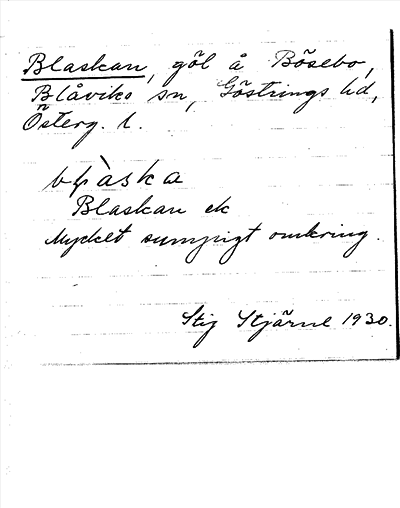 Blaskan, göl å Bösebo,
Blåviks sn, Göstrings hd,
Österg. l.
bɫàska
Blaskan ek
Mycket sumpigt omkring.
Stig Stjärne 1930.